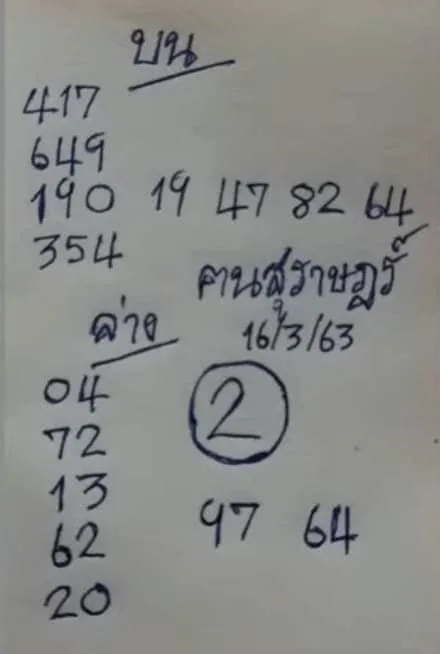 บน
417
649
190 19 47 82 64
354
คนสุราษฎร์
ล่าง
16/3/63
04
72
2
13
97 64
62
20